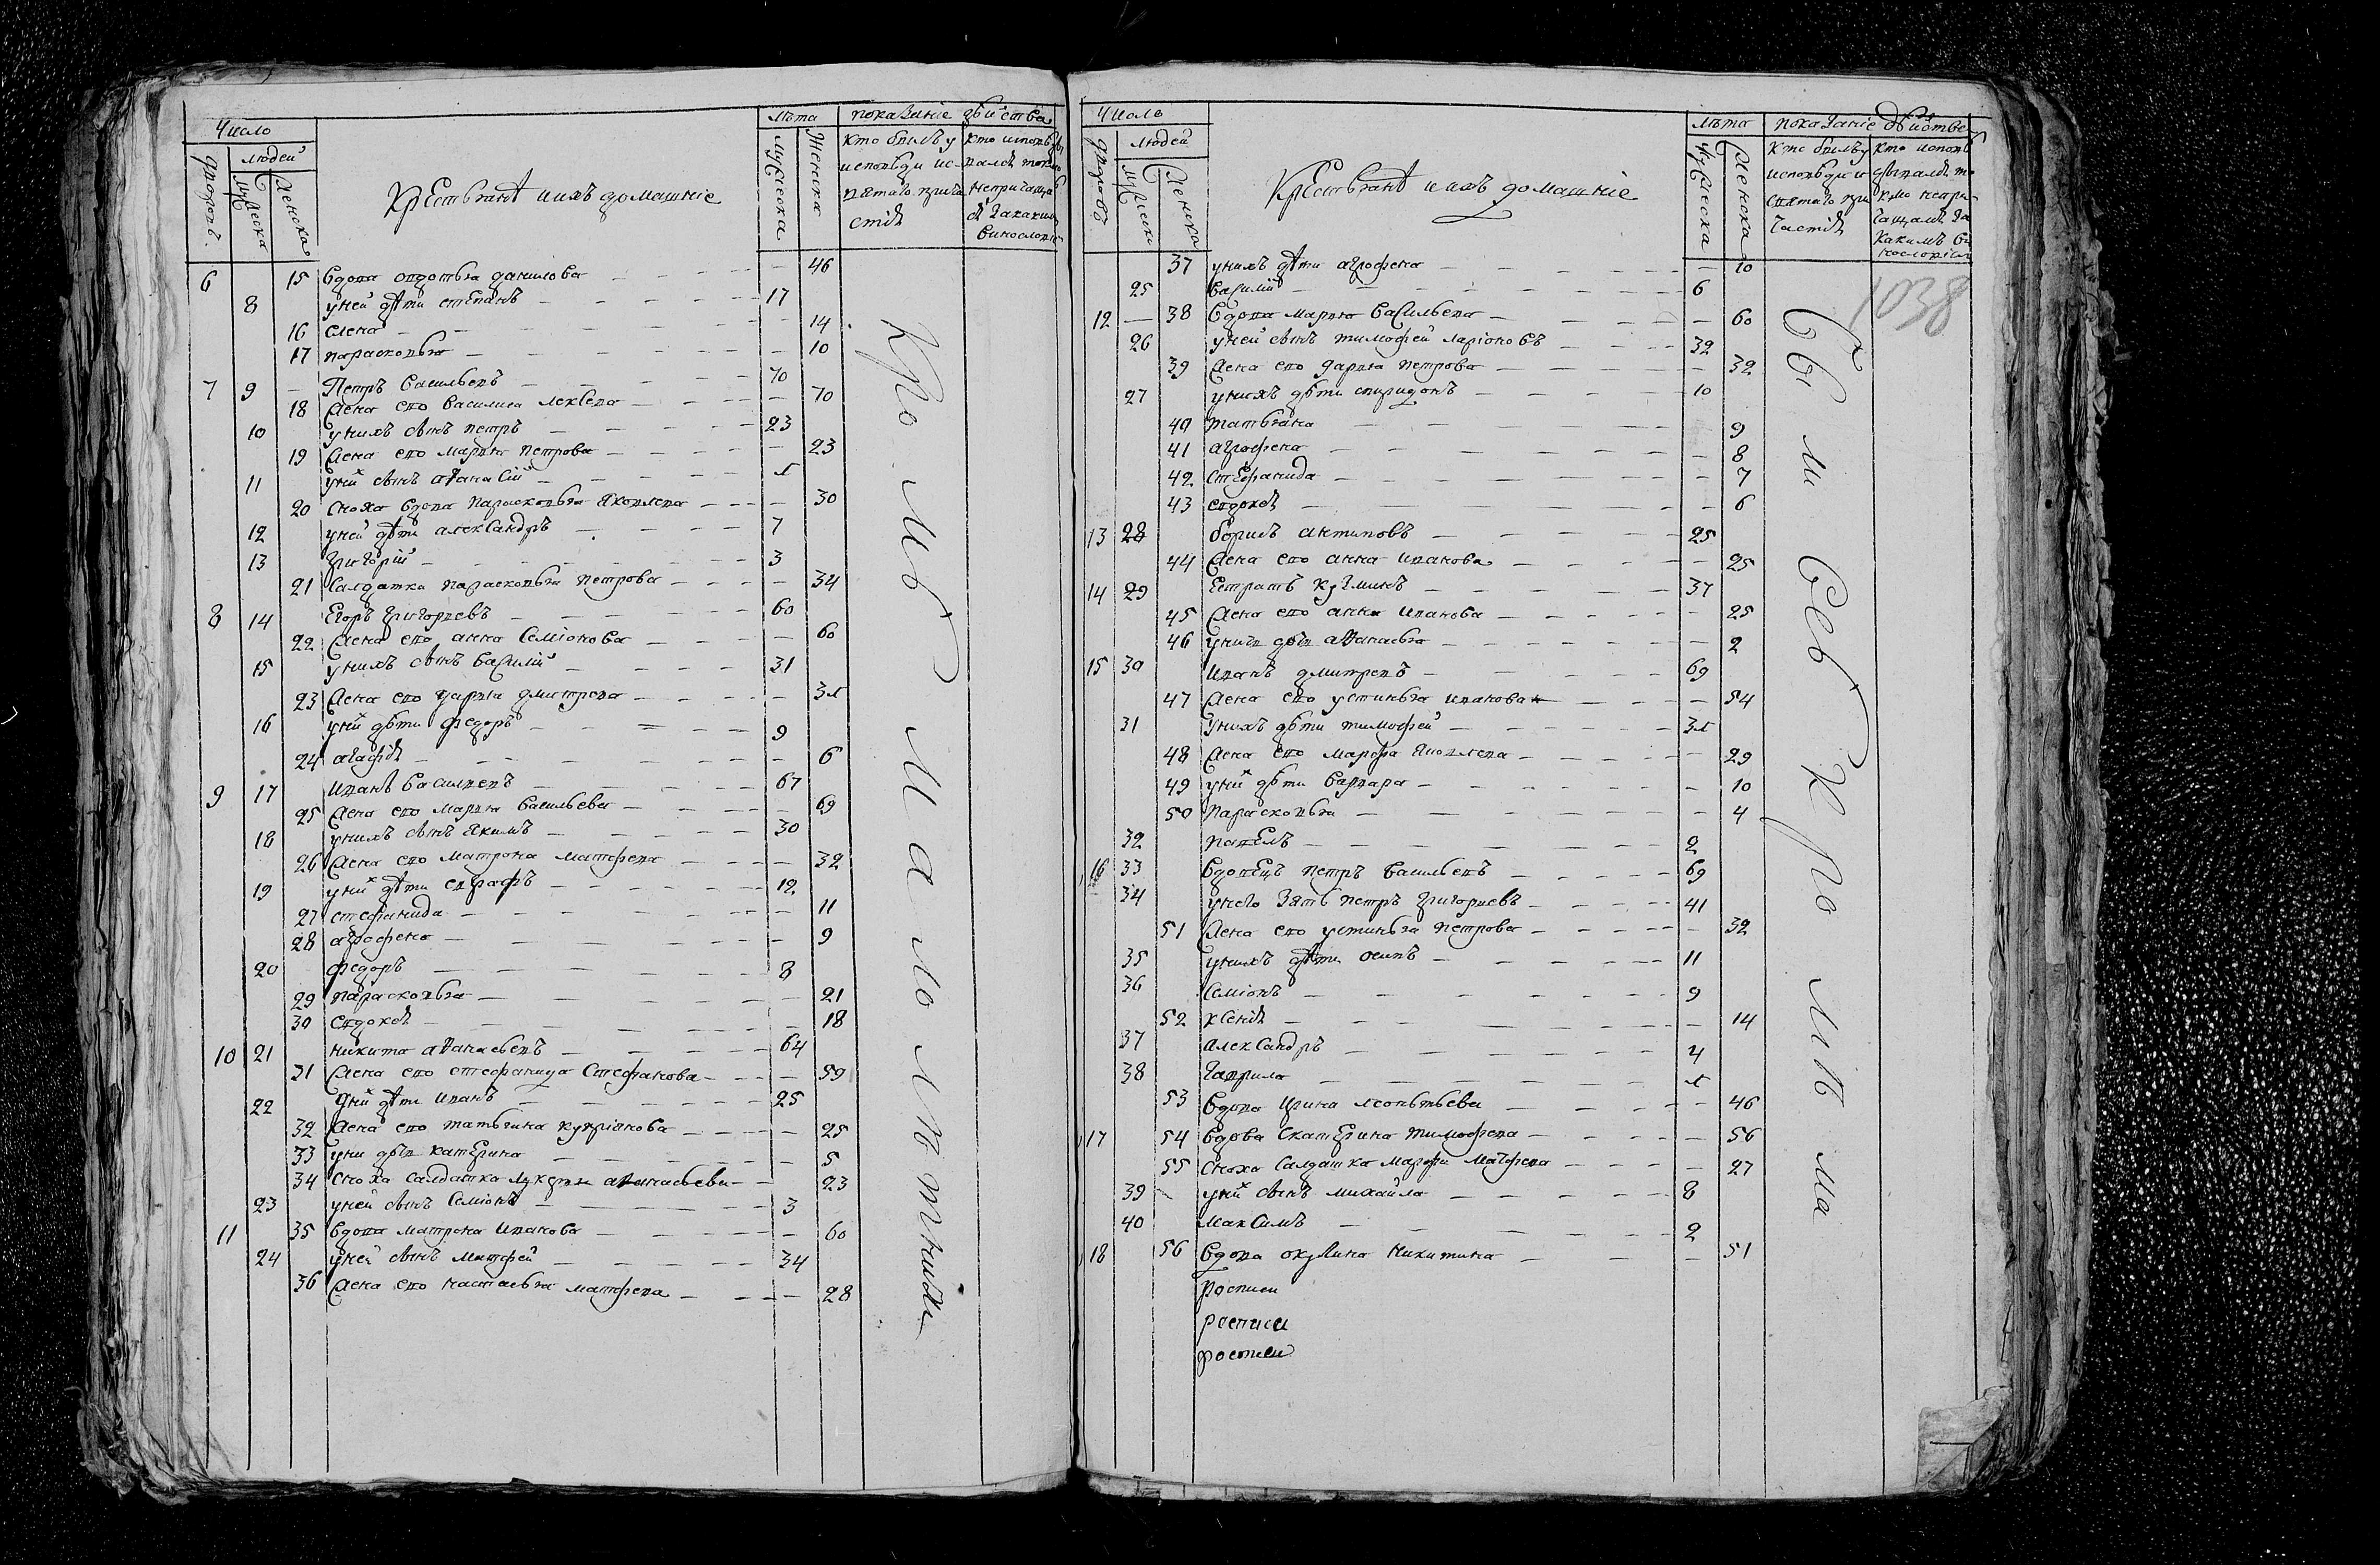 Число
людей
дворовъ
мужеска
женска
Крестьяне и ихъ домашніе
лѣта
мужеска
женска
показаніе дѣйства
кто былъ у исповѣди и святаго причастія
кто исповѣдывался токмо а не причащался и за какимъ винословіемъ
6 15 вдова овдотья данилова — 46
8 у ней дѣти степанъ 17
16 елена — 14
17 парасковья — 10
7 9 — Петръ Васильевъ 70
18 жена ево василиса — 70
10 у нихъ сынъ петръ 23
19 жена ево марья петрова — 23
11 у них сынъ аѳанасій
20 сноха вдова парасковья яковлева — 30
12 у ней дѣти александръ 7
13 григорій 3
21 салдатка парасковья петрова — 34
8 14 Егоръ григорьевъ 60
22 жена ево анна семіонова — 60
15 у нихъ сынъ василій 31
23 жена ево дарья дмитрева —
16 у них дѣти федоръ 9
24 агафія — 6
9 17 иванъ василиевъ 67
25 жена ево марья васильева — 69
18 у нихъ сынъ якимъ 30
26 жена ево матрона матфева — 32
19 у них дѣти евграфъ 12
27 стефанида — 11
28 агрофена — 9
20 федоръ 8
29 парасковья — 21
30 евдокія — 18
10 21 никита аѳанасьевъ 64
31 жена ево стефанида стефанова — 59
22 у них дѣти иванъ 25
32 жена ево татьяна купріянова — 25
33 у них дѣти катерина — 5
34 сноха салдатка лукерья аѳанасьева — 23
23 у ней сынъ семіонъ 3
11 35 вдова матрона иванова — 60
24 у ней сынъ матфей 34
36 жена ево настасья матфева — 28
Кромѣ малолѣтнихъ
Число
людей
дворовъ
мужеска
женска
Крестьяне и ихъ домашніе
лѣта
мужеска
женска
показаніе дѣйства
кто былъ у исповѣди и святаго причастія
кто исповѣдывался токмо не причащался за какимъ винословіемъ
1038
37 у нихъ дѣти агрофена — 10
25 василій 6
12 — 38 вдова марья васильева — 60
26 у ней сынъ тимофей ларіоновъ 32
39 жена ево дарья петрова — 32
27 у нихъ дѣти спиридонъ 10
40 татьяна — 9
41 агрофена — 8
42 стефанида — 7
43 евдокія — 6
13 28 борисъ антиповъ 25
44 жена ево анна иванова — 25
14 29 Естратъ кузминъ 37
45 жена ево анна иванова — 25
46 у нихъ дѣти — 2
15 30 иванъ дмитревъ 69
47 жена ево устинья иванова — 54
31 у нихъ дѣти тимофей
48 жена ево марфа яковлева — 29
49 у них дѣти варвара — 10
50 парасковья — 4
32 павелъ 2
16 33 вдовецъ петръ васильевъ 69
34 у него зять петръ григорьевъ 41
51 жена ево устинья петрова — 32
35 у нихъ дѣти осипъ 11
36 семіонъ 9
52 ксенія — 14
37 александръ 4
38 гаврила
53 вдова ирина леонтьева — 46
17 54 вдова екатерина тимофева — 56
55 сноха салдатка марфа матфева — 27
39 у них сынъ михайла 8
40 максимъ 2
18 56 вдова окулина никитина — 51
росписи
росписи
росписи